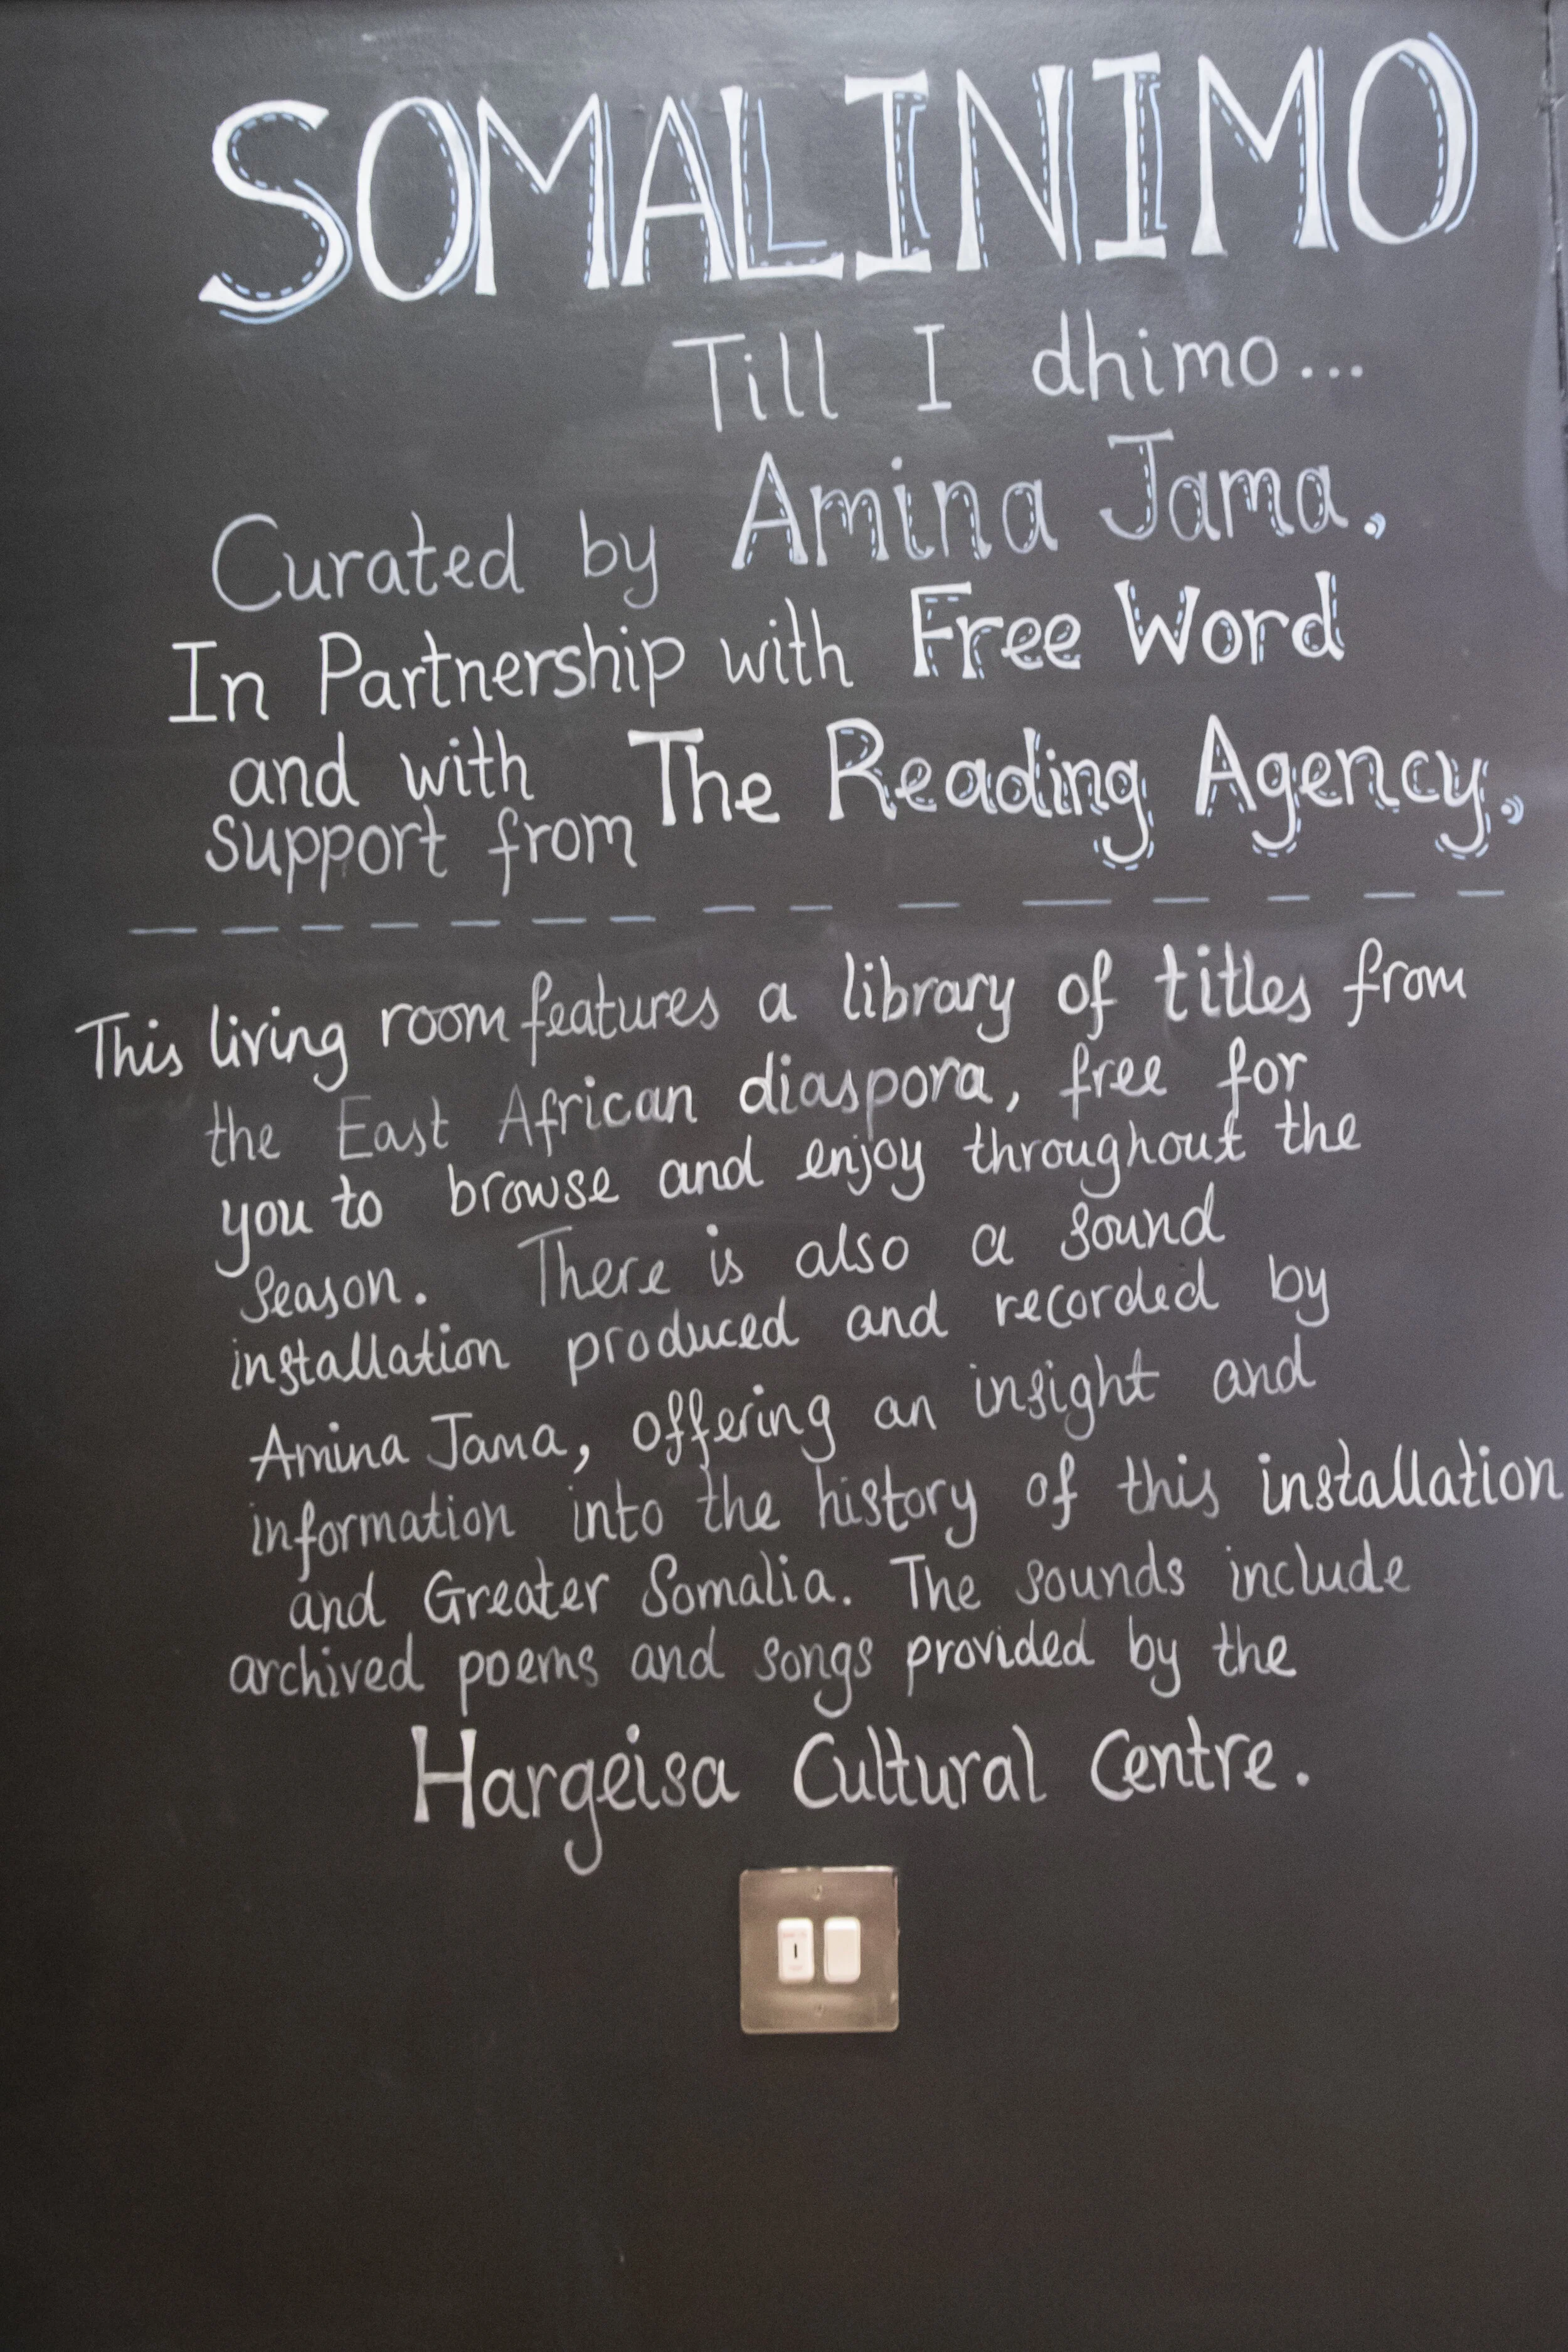 SOMALINIMO
Till I dhimo...
Curated by Amina Jama.
In Partnership with Free Word
and with
support from The Reading Agency.
This living room features a library of titles from
the East African diaspora, free for
you to browse and enjoy throughout the
season. There is also a sound
installation produced and recorded by
Amina Jama, offering an insight and
information into the history of this installation
and Greater Somalia. The sounds include
archived poems and songs provided by the
Hargeisa Cultural Centre.